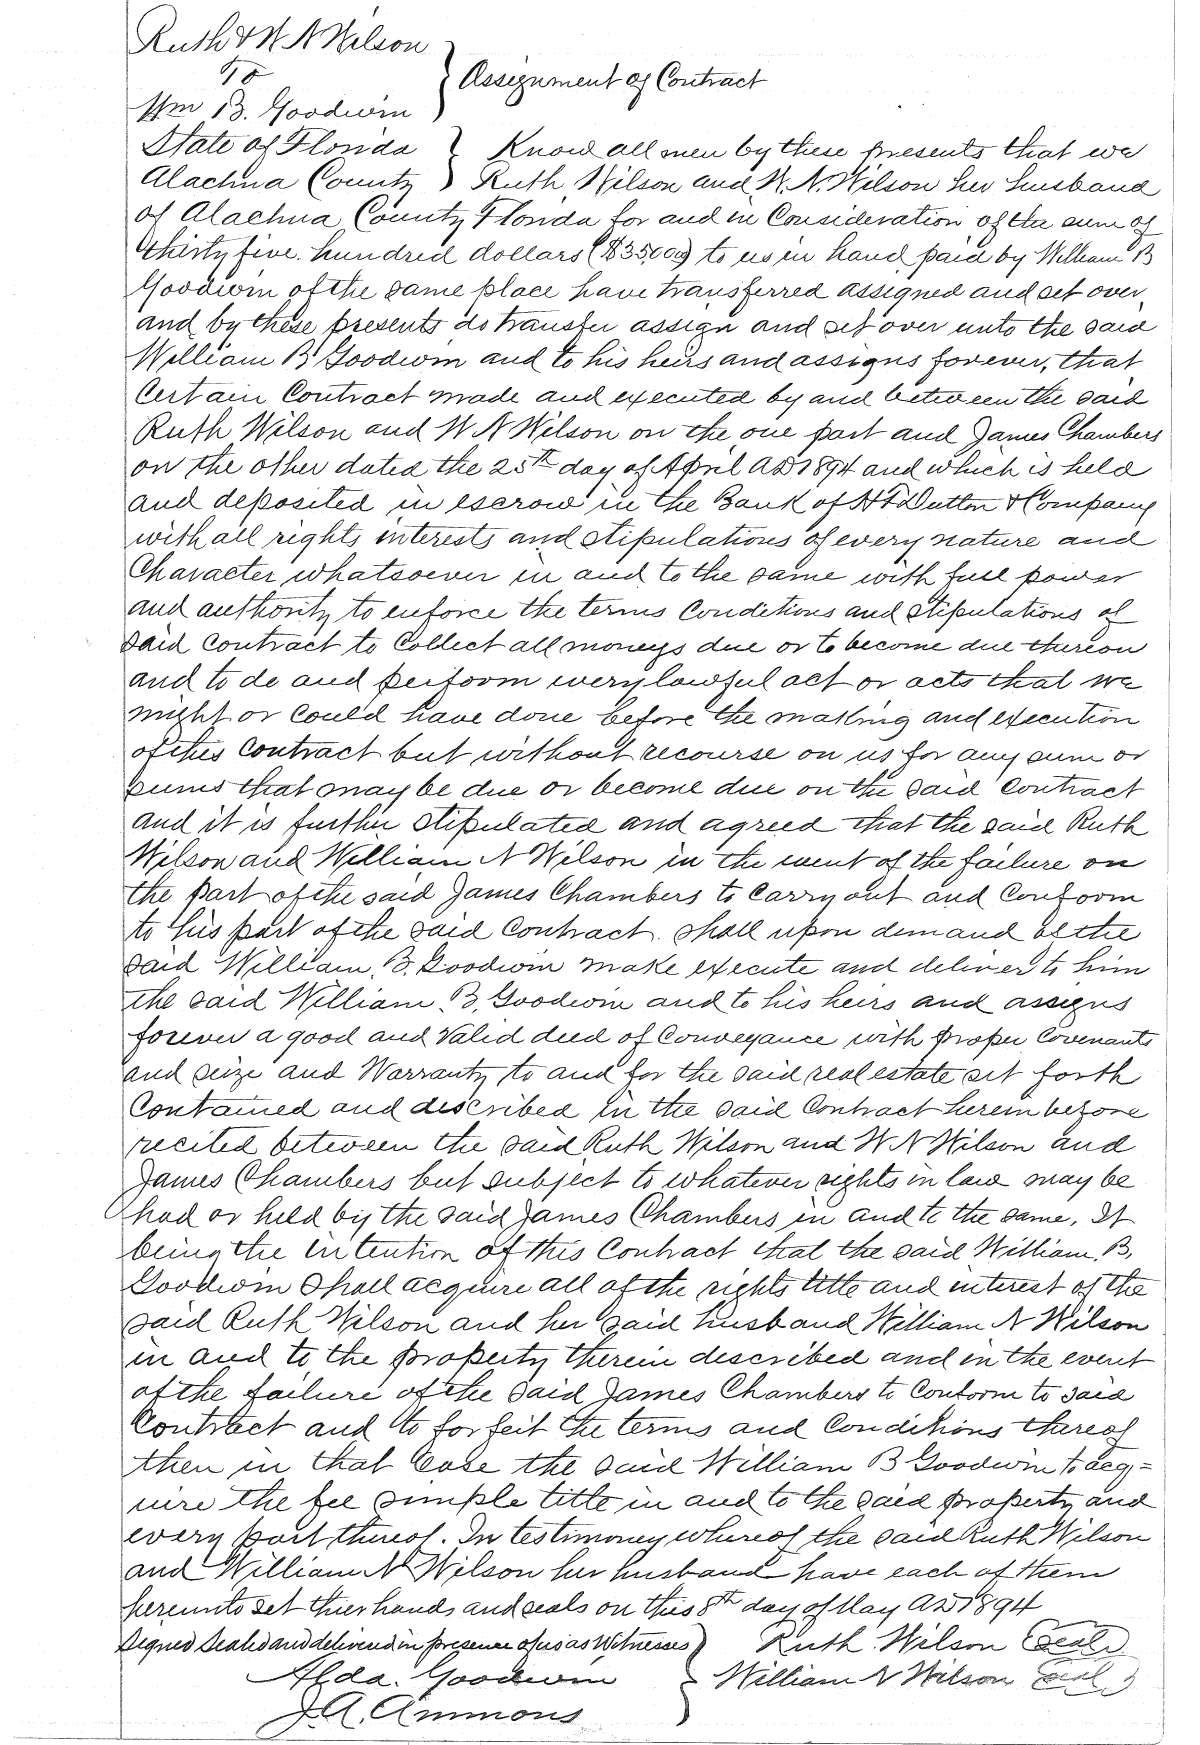 Ruth & W N Wilson
To
Wm B. Goodwin
Assignment of Contract
State of Florida } Know all men by these presents that we
Alachua County } Ruth Wilson and W. N. Wilson her husband
of Alachua County Florida for and in Consideration of the sum of
thirty five hundred dollars ($3500) to us in hand paid by William B
Goodwin of the same place have transferred assigned and set over
and by these presents do transfer assign and set over unto the said
William B Goodwin and to his heirs and assigns forever, that
Certain Contract made and executed by and between the said
Ruth Wilson and W N Wilson on the one part and James Chambers
on the other dated the 25th day of April AD 1894 and which is held
and deposited in escrow in the Bank of H F Dutton & Company
with all rights interests and stipulations of every nature and
Character whatsoever in and to the same with full power
and authority to enforce the terms Conditions and stipulations of
said Contract to Collect all moneys due or to become due thereon
and to do and perform every lawful act or acts that we
might or could have done before the making and execution
of this Contract but without recourse on us for any sum or
sums that may be due or become due on the said Contract
and it is further stipulated and agreed that the said Ruth
Wilson and William N Wilson in the event of the failure on
the part of the said James Chambers to Carry out and Conform
to his part of the said Contract. shall upon demand of the
said William. B. Goodwin make execute and deliver to him
the said William. B. Goodwin and to his heirs and assigns
forever a good and Valid deed of Conveyance with proper Covenants
and seize and Warranty to and for the said real estate set forth
Contained and described in the said Contract herein before
recited between the said Ruth Wilson and W N Wilson and
James Chambers but subject to whatever rights in law may be
had or held by the said James Chambers in and to the same. It
being the intention of this Contract that the said William. B.
Goodwin shall acquire all of the rights title and interest of the
said Ruth Wilson and her said husband William N Wilson
in and to the property therein described and in the event
of the failure of the said James Chambers to Conform to said
Contract and to forfeit the terms and Conditions thereof
then in that Case the said William B Goodwin to acq=
uire the fee simple title in and to the said property and
every part thereof. In testimoney whereof the said Ruth Wilson
and William N Wilson her husband have each of them
hereunto set thier hands and seals on this 8th day of May AD 1894
Signed Sealed and delivered in presence of us as Witnesses } Ruth Wilson (Seal)
Alda. Goodwin } William N Wilson (Seal)
J. A. Ammons